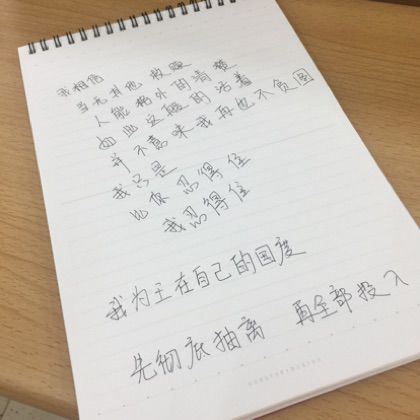 我相信
当无利地放
人能格外的清醒
由此定睛的活着
并不意味我再也不负图
我只是
比你忍得住
我忍得住
我为王在自己的国度
先彻底抽离 再全部投入